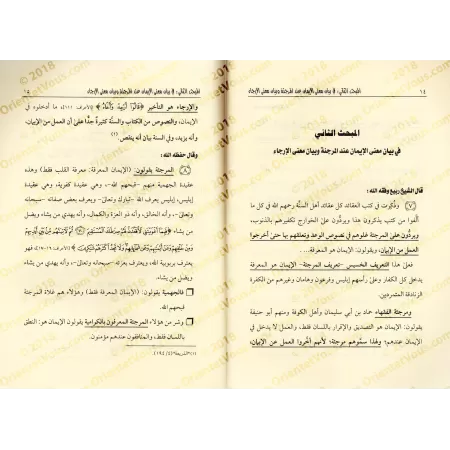 ١٤
المبحث الثاني: في بيان معنى الإيمان عند المرجئة وبيان معنى الإرجاء
المبحث الثاني
في بيان معنى الإيمان عند المرجئة وبيان معنى الإرجاء
قال الشيخ ربيع وفقه الله:
٧ وذكرت في كتب العقائد كل عقائد أهل السنَّة رحمهم الله ما كل
ألَّفوا من كتب يذكرون هذا ويردُّون على الخوارج تكفيرهم بالذنوب،
ويردُّون على المرجئة غلوهم في نصوص الوعد وتعلقهم بها حتىٰ أخرجوا
العمل من الإيمان، يقولون: الإيمان هو المعرفة...
فعلىٰ هذا التعريف الخسيس -تعريف المرجئة- الإيمان هو المعرفة
يدخل كل الكفار وعلىٰ رأسهم إبليس وفرعون وهامان وغيرهم من الكفرة
الزنادقة المتمردين.
ومرجئة الفقهاء حماد بن أبي سليمان وأهل الكوفة ومنهم أبو حنيفة
يقولون: الإيمان هو التصديق والإقرار باللسان فقط، والعمل لا يدخل في
الإيمان عندهم؛ ولهذا سمُّوهم مرجئة؛ لأنهم أخَّروا العمل عن الإيمان،
المبحث الثاني: في بيان معنى الإيمان عند المرجئة وبيان معنى الإرجاء
١٥
والإرجاء هو التأخير ﴿قَالُوٓاْ أَرۡجِهۡ وَأَخَاهُ﴾ [الأعراف: ١١١]، ما أدخلوه في
الإيمان، والنصوص من الكتاب والسنَّة كثيرة جدًّا علىٰ أن العمل من الإيمان،
وأنه يزيد، وفي السنة بيان أنه ينقص.(١)
وقال حفظه الله:
٨ المرجئة يقولون: (الإيمان المعرفة: معرفة القلب فقط) وهذه
عقيدة الجهمية منهم -قبحهم الله-، وهي عقيدة كفرية، وهي عقيدة
إبليس، إبليس يعرف الله -تبارك وتعالىٰ-، ويعرف بعض صفاته -سبحانه
وتعالىٰ-، وأنه الخالق، وأنه ذو العزة والكمال، وأنه يهدي من يشاء
ويضل من يشاء.
فالجهمية يقولون: (الإيمان المعرفة فقط) وهؤلاء هم غلاة المرجئة
قبحهم الله.
وشر من هؤلاء المرجئة المعرفون بالكرامية يقولون الإيمان هو: النطق
باللسان فقط، والمنافقون عندهم مؤمنون.